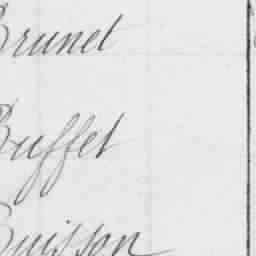 Brunet
Buffet
Buisson